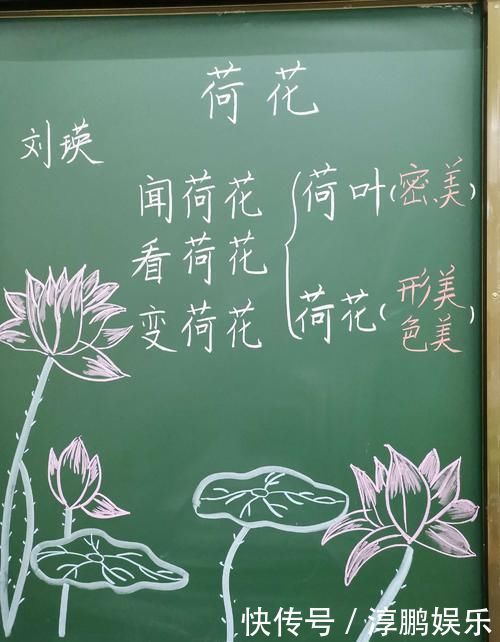 荷花
刘瑛
闻荷花
看荷花
变荷花
荷叶(密、美)
荷花(形美
色美)
快传号/淳鹏娱乐